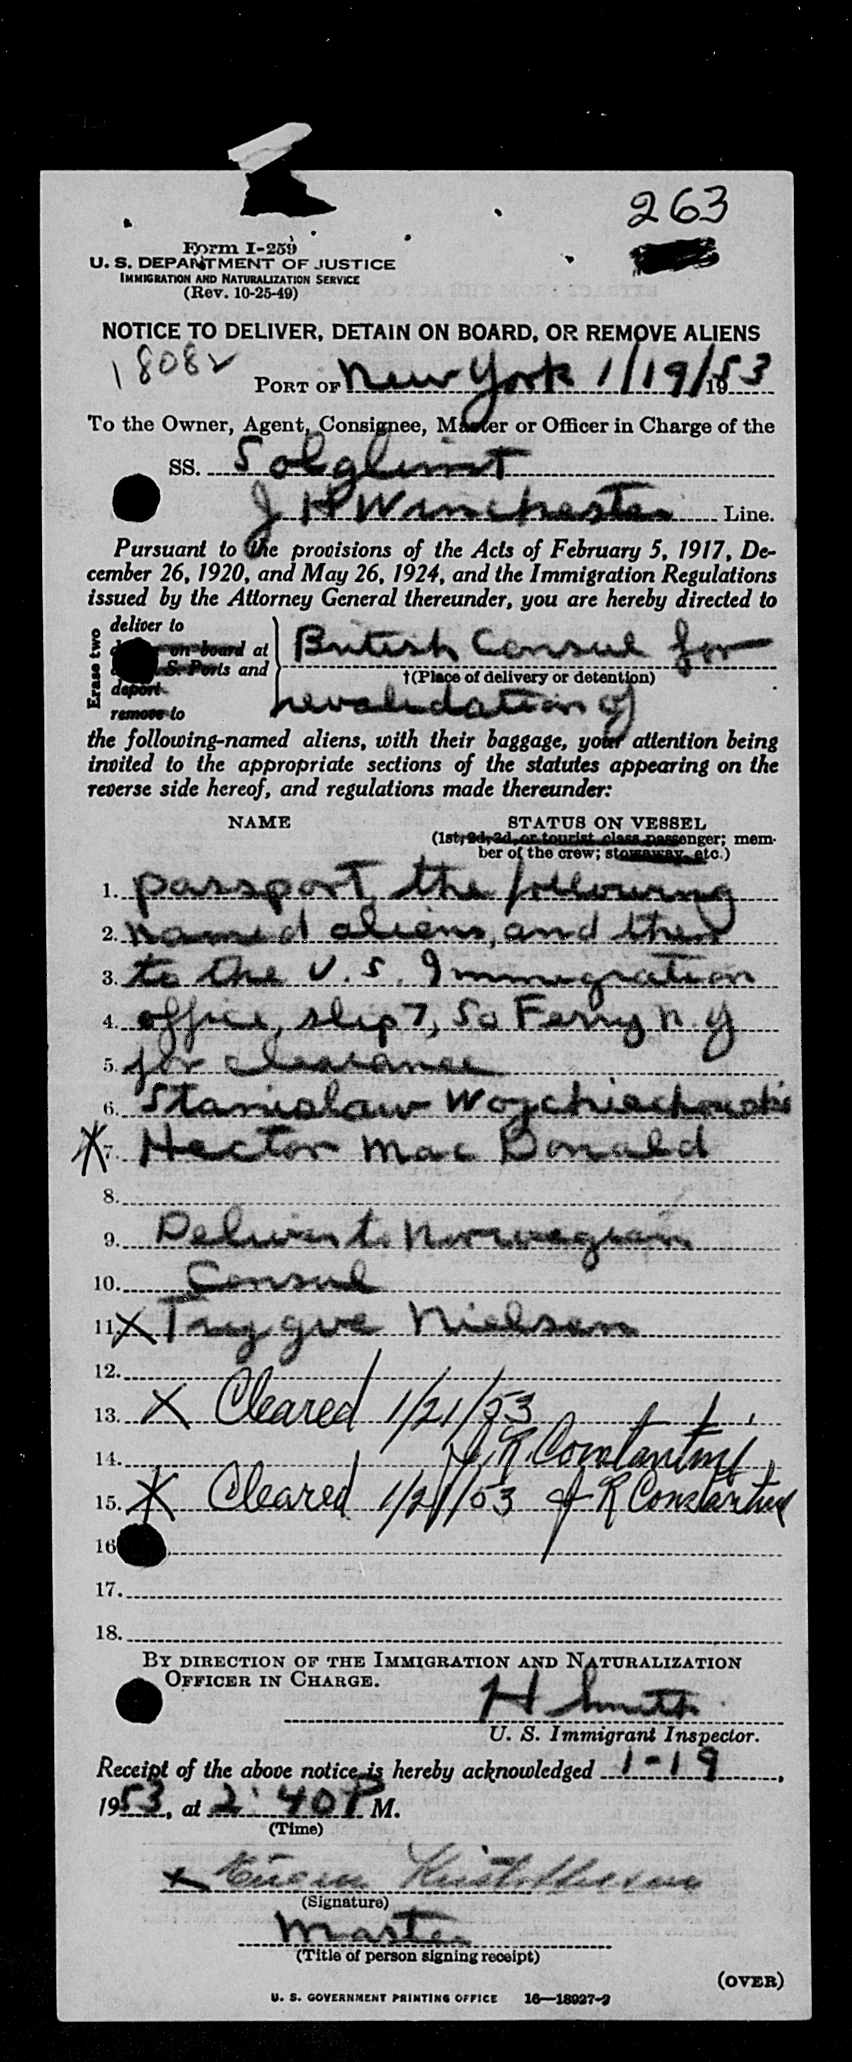 263
Form I-259
U. S. DEPARTMENT OF JUSTICE
IMMIGRATION AND NATURALIZATION SERVICE
(Rev. 10-25-49)
NOTICE TO DELIVER, DETAIN ON BOARD, OR REMOVE ALIENS
18082
PORT OF New York 1/19/1953
To the Owner, Agent, Consignee, Master or Officer in Charge of the
SS. Solglimt
J H Winchester Line.
Pursuant to the provisions of the Acts of February 5, 1917, De-
cember 26, 1920, and May 26, 1924, and the Immigration Regulations
issued by the Attorney General thereunder, you are hereby directed to
Erase two
deliver to
on board at
U. S. Ports and
deport
remove to
British Consul for
†(Place of delivery or detention)
revalidation of
the following-named aliens, with their baggage, your attention being
invited to the appropriate sections of the statutes appearing on the
reverse side hereof, and regulations made thereunder:
NAME STATUS ON VESSEL
(1st, 2d, 3d, or tourist class passenger; mem-
ber of the crew; stowaway, etc.)
1. passport the following
2. named aliens, and then
3. to the U. S. Immigration
4. office, slip 7, So Ferry N. Y
5. for clearance
6. Stanislaw Wojchiechowski
X 7. Hector Mac Donald
8.
9. Deliver to Norwegian
10. Consul
11. X Tryggve Nielsen
12.
13. X Cleared 1/21/53
14. J. R. Constantini
15. X Cleared 1/21/53 J R Constantini
16
17.
18.
BY DIRECTION OF THE IMMIGRATION AND NATURALIZATION
OFFICER IN CHARGE.
H Smith
U. S. Immigrant Inspector.
Receipt of the above notice is hereby acknowledged 1-19,
1953, at 2:40 P M.
(Time)
x
(Signature)
Master
(Title of person signing receipt)
(OVER)
U. S. GOVERNMENT PRINTING OFFICE 16—18927-2